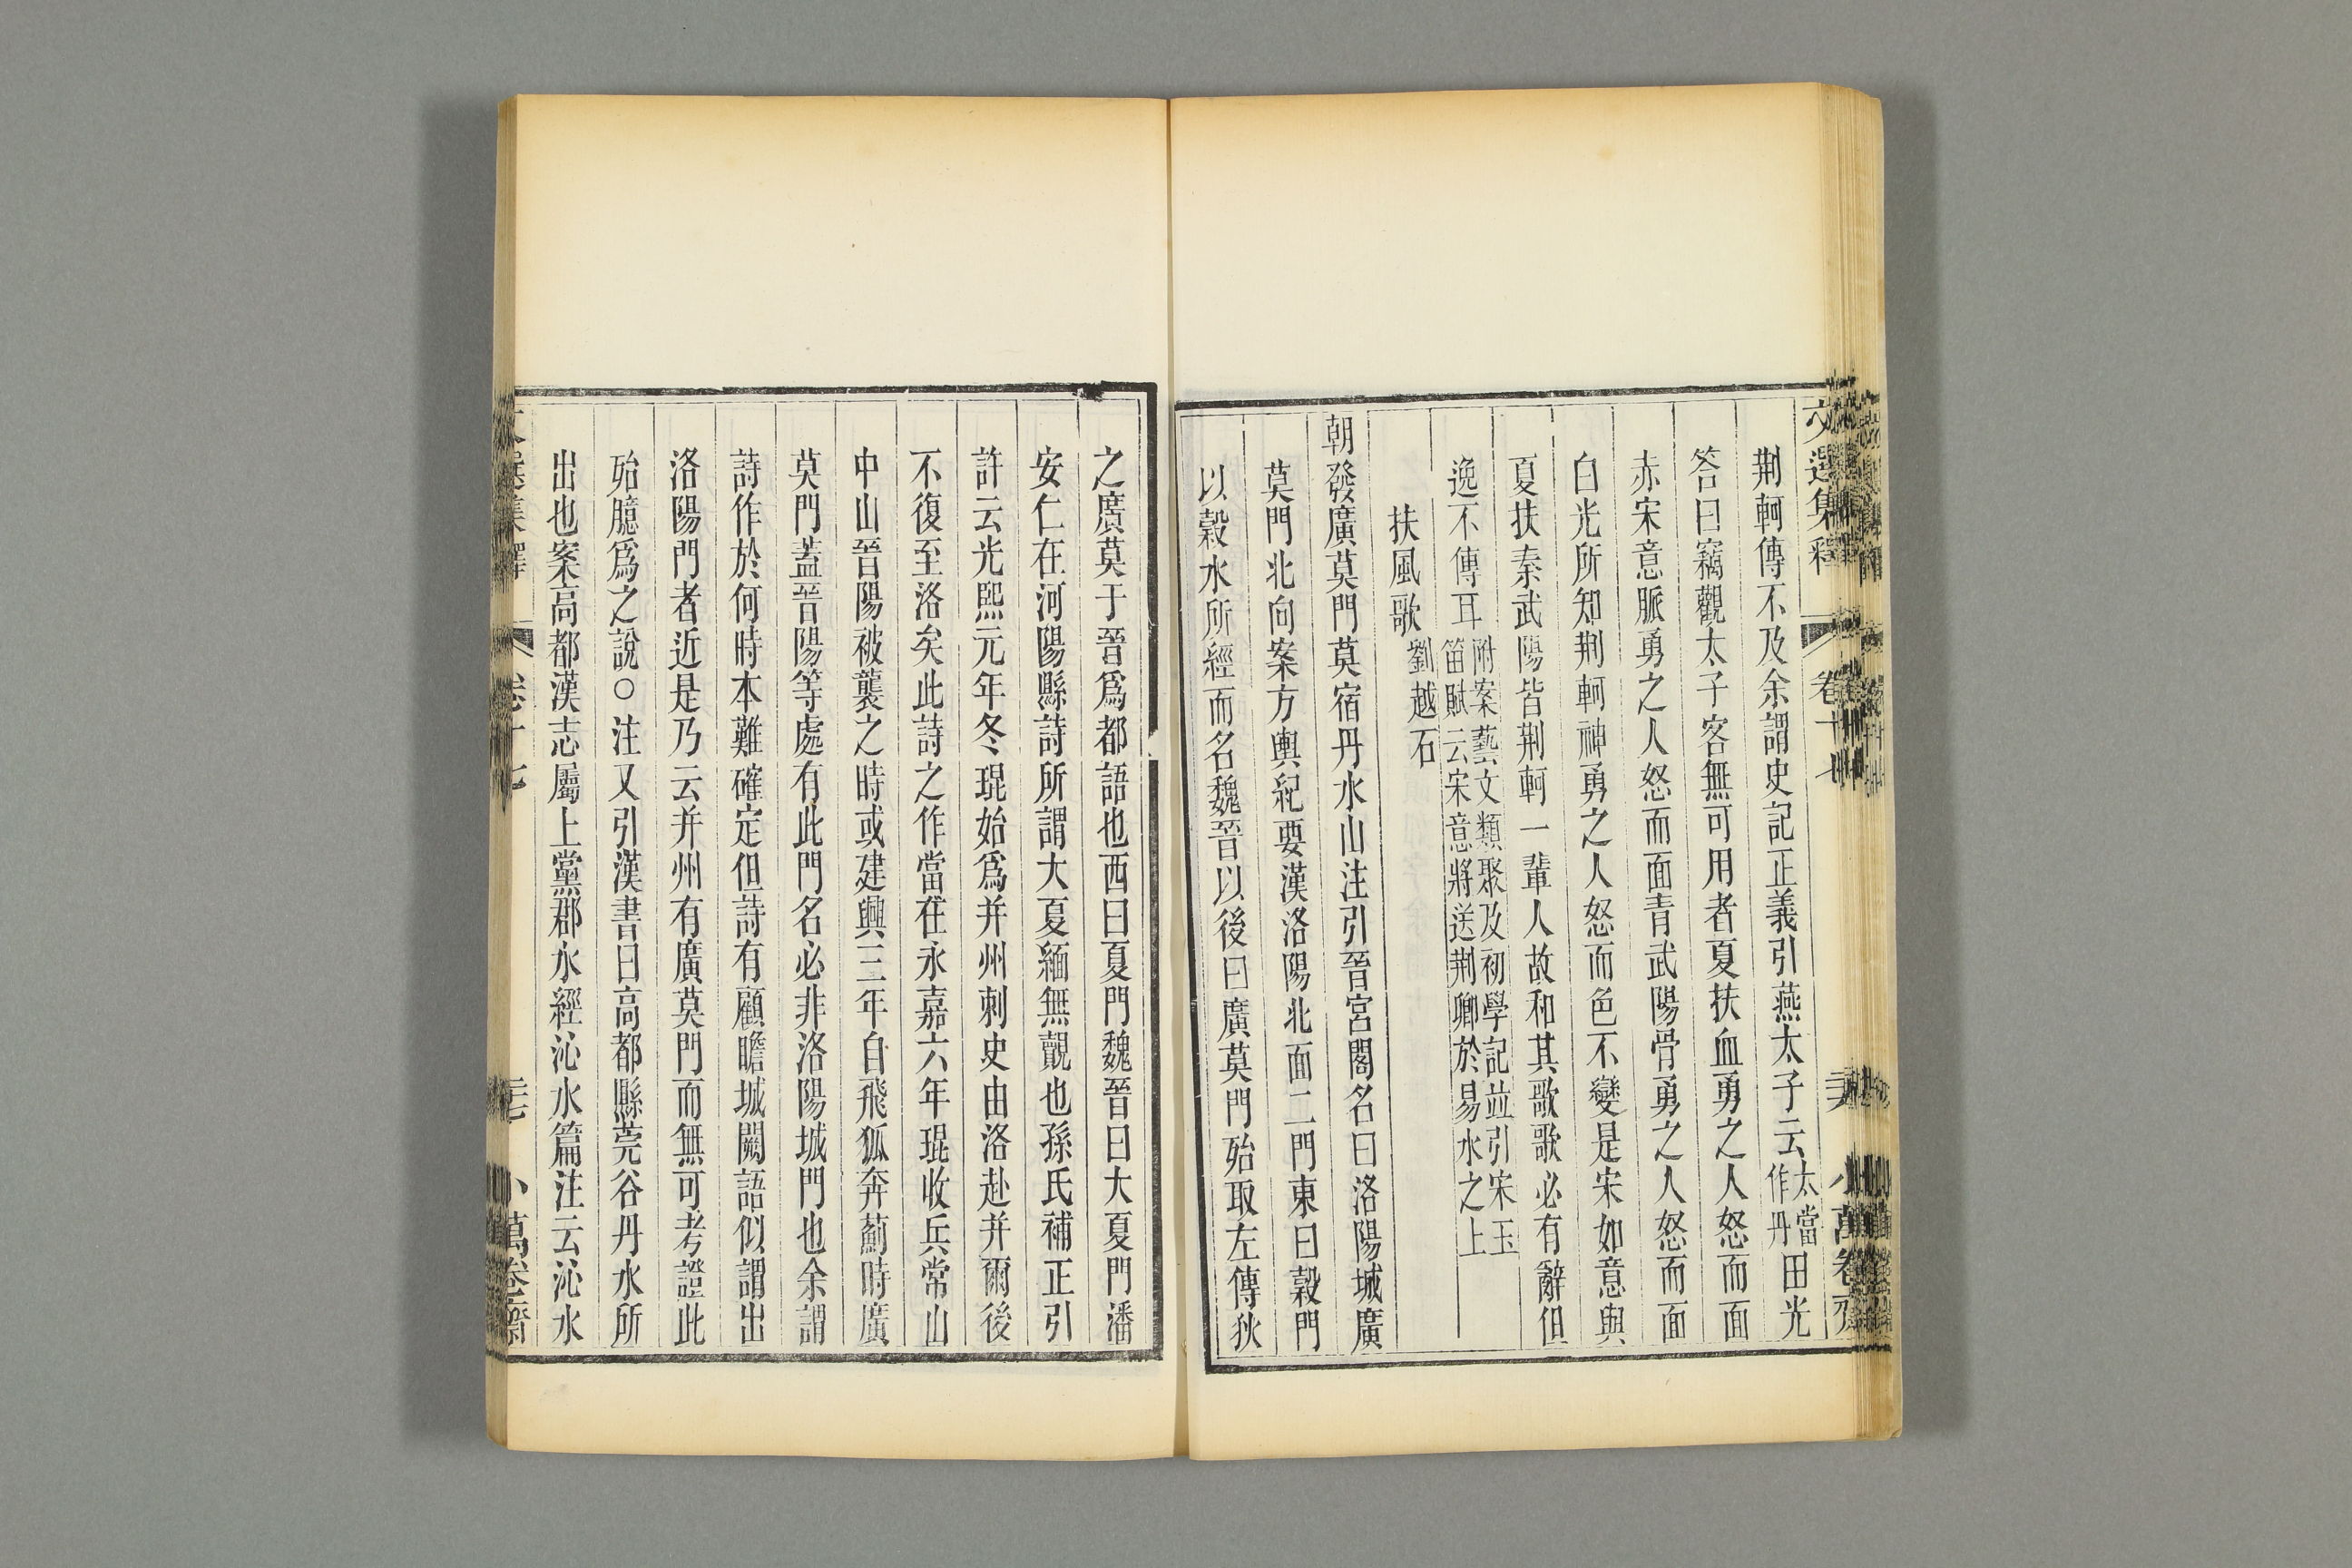 文選集釋 卷十七 小萬卷齋
荆軻傳不及余謂史記正義引燕太子云太當作丹田光
答曰竊觀太子客無可用者夏扶血勇之人怒而面
赤宋意脈勇之人怒而面青武陽骨勇之人怒而面
白光所知荆軻神勇之人怒而色不變是宋如意與
夏扶秦武陽皆荆軻一輩人故和其歌歌必有辭但
逸不傳耳附案藝文類聚及初學記竝引宋玉笛賦云宋意將送荆卿於易水之上
扶風歌 劉越石
朝發廣莫門莫宿丹水山注引晉宮閣名曰洛陽城廣
莫門北向案方輿紀要漢洛陽北面二門東曰穀門
以穀水所經而名魏晉以後曰廣莫門殆取左傳狄
之廣莫于晉爲都語也西曰夏門魏晉曰大夏門潘
安仁在河陽縣詩所謂大夏緬無覿也孫氏補正引
許云光熙元年冬琨始爲并州刺史由洛赴并爾後
不復至洛矣此詩之作當在永嘉六年琨收兵常山
中山晉陽被襲之時或建興三年自飛狐奔薊時廣
莫門蓋晉陽等處有此門名必非洛陽城門也余謂
詩作於何時本難確定但詩有顧瞻城闕語似謂出
洛陽門者近是乃云并州有廣莫門而無可考證此
殆臆爲之說○注又引漢書曰高都縣莞谷丹水所
出也案高都漢志屬上黨郡水經沁水篇注云沁水
選集釋 卷十七 小萬卷齋